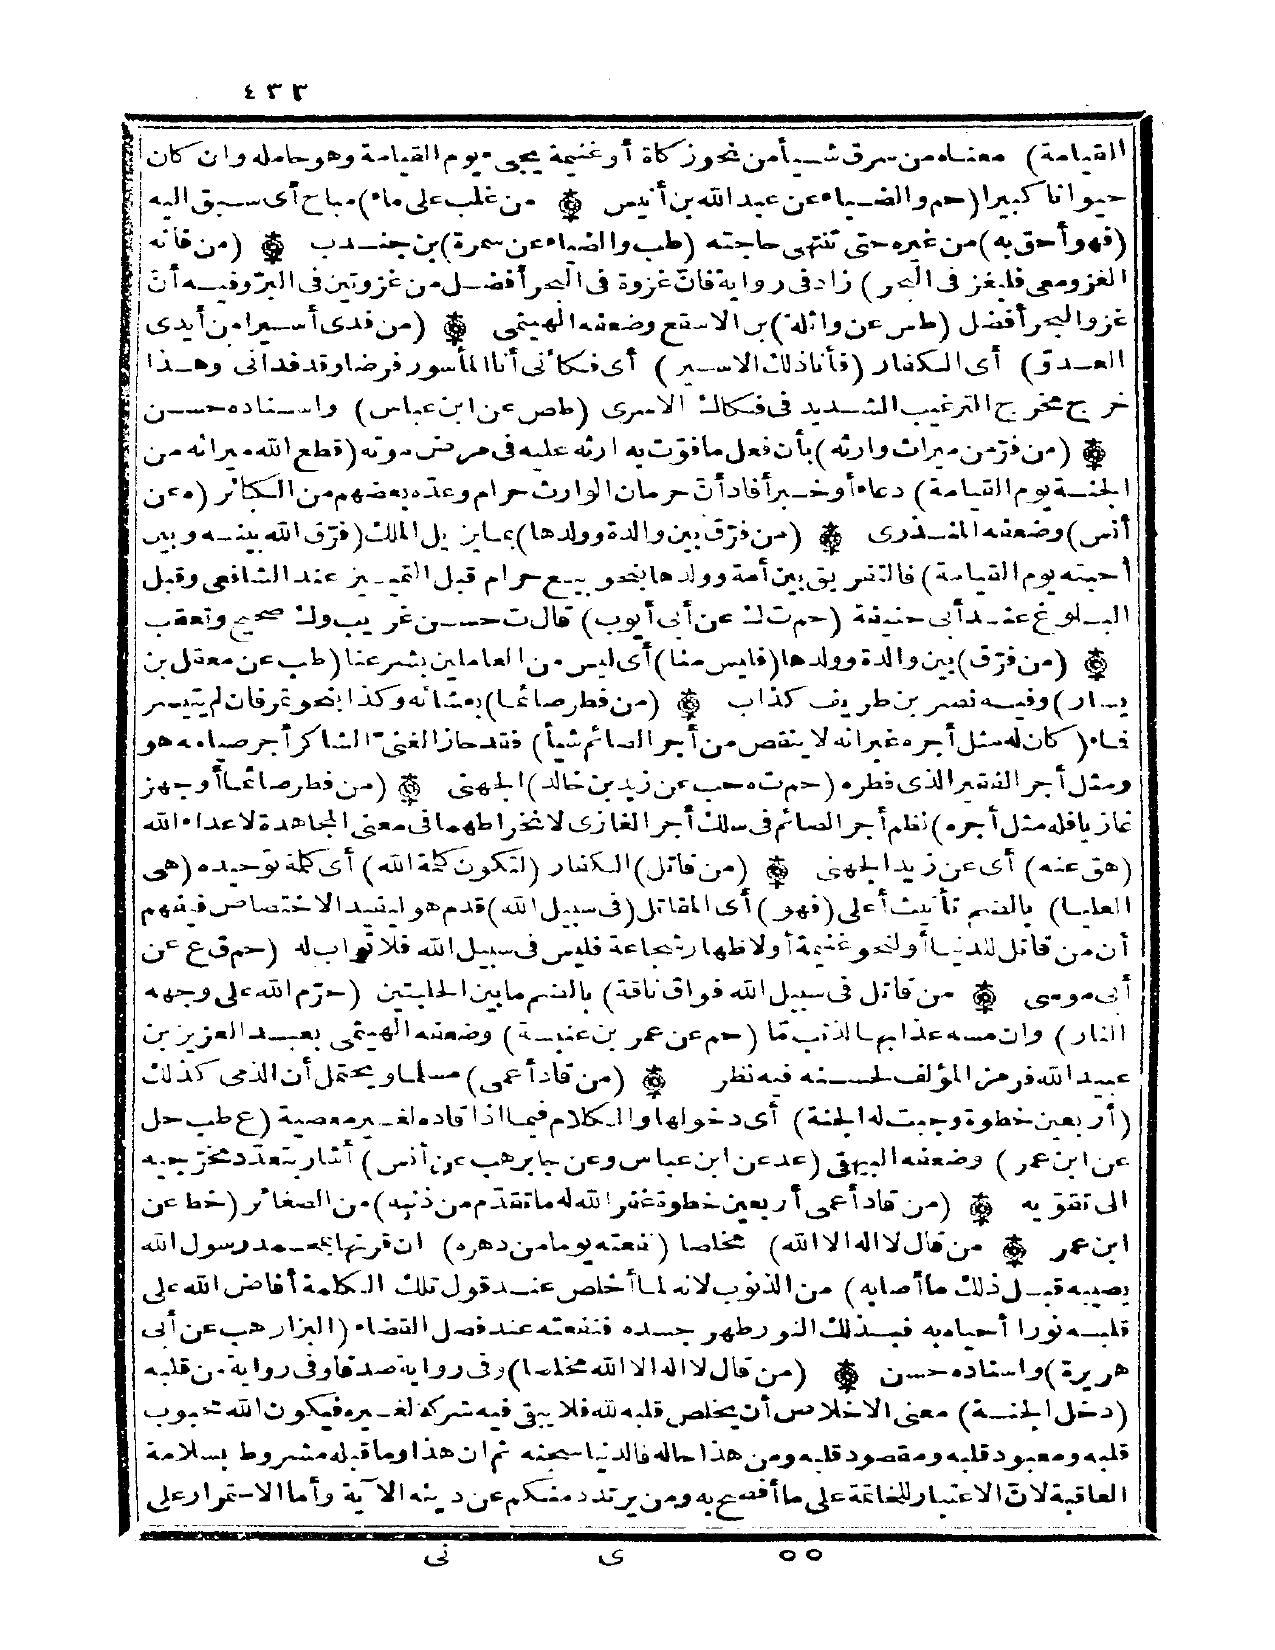 ٤٣٣
القيامة) معناه من سرق شيأ من نحو زكاة أو غنيمة يجىء يوم القيامة وهو حامله وان كان
حيوانا كبيرا (حم والضياء عن عبد الله بن أنيس من غلب على ماء) مباح أى سبق اليه
(فهو أحق به) من غيره حتى تنتهى حاجته (طب والضياء عن سمرة) بن جندب (من فاته
الغزو معى فليغز فى البحر) زاد فى رواية فانّ غزوة فى البحر أفضل من غزوتين فى البرّ وفيه أنّ
غزو البحر أفضل (طس عن واثلة) بن الاسقع وضعفه الهيتمى (من فدى أسيرا من أيدى
العدوّ) أى الكفار (فأنا ذلك الاسير) أى فكأنى أنا المأسور فرضا وقد فدانى وهذا
خرج مخرج الترغيب الشديد فى فكاك الاسرى (طص عن ابن عباس) واسناده حسن
(من فرّ من ميراث وارثه) بأن فعل ما فوّت به ارثه عليه فى مرض موته (قطع الله ميراثه من
الجنة يوم القيامة) دعاء أو خبر أفاد أنّ حرمان الوارث حرام وعدّه بعضهم من الكبائر (ه عن
أنس) وضعفه المنذرى (من فرّق بين والدة وولدها) بما يزيل الملك (فرّق الله بينه وبين
أحبته يوم القيامة) فالتفريق بين أمة وولدها بنحو بيع حرام قبل التمييز عند الشافعى وقبل
البلوغ عند أبى حنيفة (حم ت ك عن أبى أيوب) قال ت حسن غريب وك صحيح وتعقب
(من فرّق) بين والدة وولدها (فليس منا) أى ليس من العاملين بشرعنا (طب عن معقل بن
يسار) وفيه نصر بن طريف كذاب (من فطر صائما) بعشائه وكذا بنحو تمر فان لم يتيسر
فماء (كان له مثل أجره غير انه لا ينقص من أجر الصائم شيأ) فقد حاز الغنىّ الشاكر أجر صيامه هو
ومثل أجر الفقير الذى فطره (حم ت ه حب عن زيد بن خالد) الجهنى (من فطر صائما أو جهز
غازيا فله مثل أجره) نظم أجر الصائم فى سلك أجر الغازى لانخراطهما فى معنى المجاهدة لاعداء الله
(هق عنه) أى عن زيد الجهنى (من قاتل) الكفار (لتكون كلمة الله) أى كلمة توحيده (هى
العليا) بالضم تأنيث أعلى (فهو) أى المقاتل (فى سبيل الله) قدم هو ليفيد الاختصاص فيفهم
أن من قاتل للدنيا أو لنحو غنيمة أو لاظهار شجاعة فليس فى سبيل الله فلا ثواب له (حم ق ع عن
أبى موسى من قاتل فى سبيل الله فواق ناقة) بالضم ما بين الحلبتين (حرّم الله على وجهه
النار) وان مسه عذابها لذنب مّا (حم عن عمر بن عنبسة) وضعفه الهيتمى بعبد العزيز بن
عبيد الله فرمز المؤلف لحسنه فيه نظر (من قاد أعمى) مسلما ويحتمل أن الذمى كذلك
(أربعين خطوة وجبت له الجنة) أى دخولها والكلام فيما اذا قاده لغير معصية (ع طب حل
عن ابن عمر) وضعفه البيهقى (عد عن ابن عباس وعن جابر هب عن أنس) أشار بتعدّد مخرّجيه
الى تقويه (من قاد أعمى أربعين خطوة غفر الله له ما تقدّم من ذنبه) من الصغائر (خط عن
ابن عمر من قال لا اله الا الله) مخلصا (نفعته يوما من دهره) ان قرنها بمحمد رسول الله
يصيبه قبل ذلك ما أصابه) من الذنوب لانه لما أخلص عند قول تلك الكلمة أفاض الله على
قلبه نورا أحياه به فبذلك النور طهر جسده فنفعته عند فصل القضاء (البزار هب عن أبى
هريرة) واسناده حسن (من قال لا اله الا الله مخلصا) وفى رواية صدقا وفى رواية من قلبه
(دخل الجنة) معنى الاخلاص أن يخلص قلبه لله فلا يبقى فيه شركة لغيره فيكون الله محبوب
قلبه ومعبود قلبه ومقصود قلبه ومن هذا حاله فالدنيا سجنه ثم ان هذا وما قبله مشروط بسلامة
العاقبة لانّ الاعتبار للخاتمة على ما أفصح به ومن يرتدد منكم عن دينه الآية وأما الاستمرار على
٥٥ ى نى